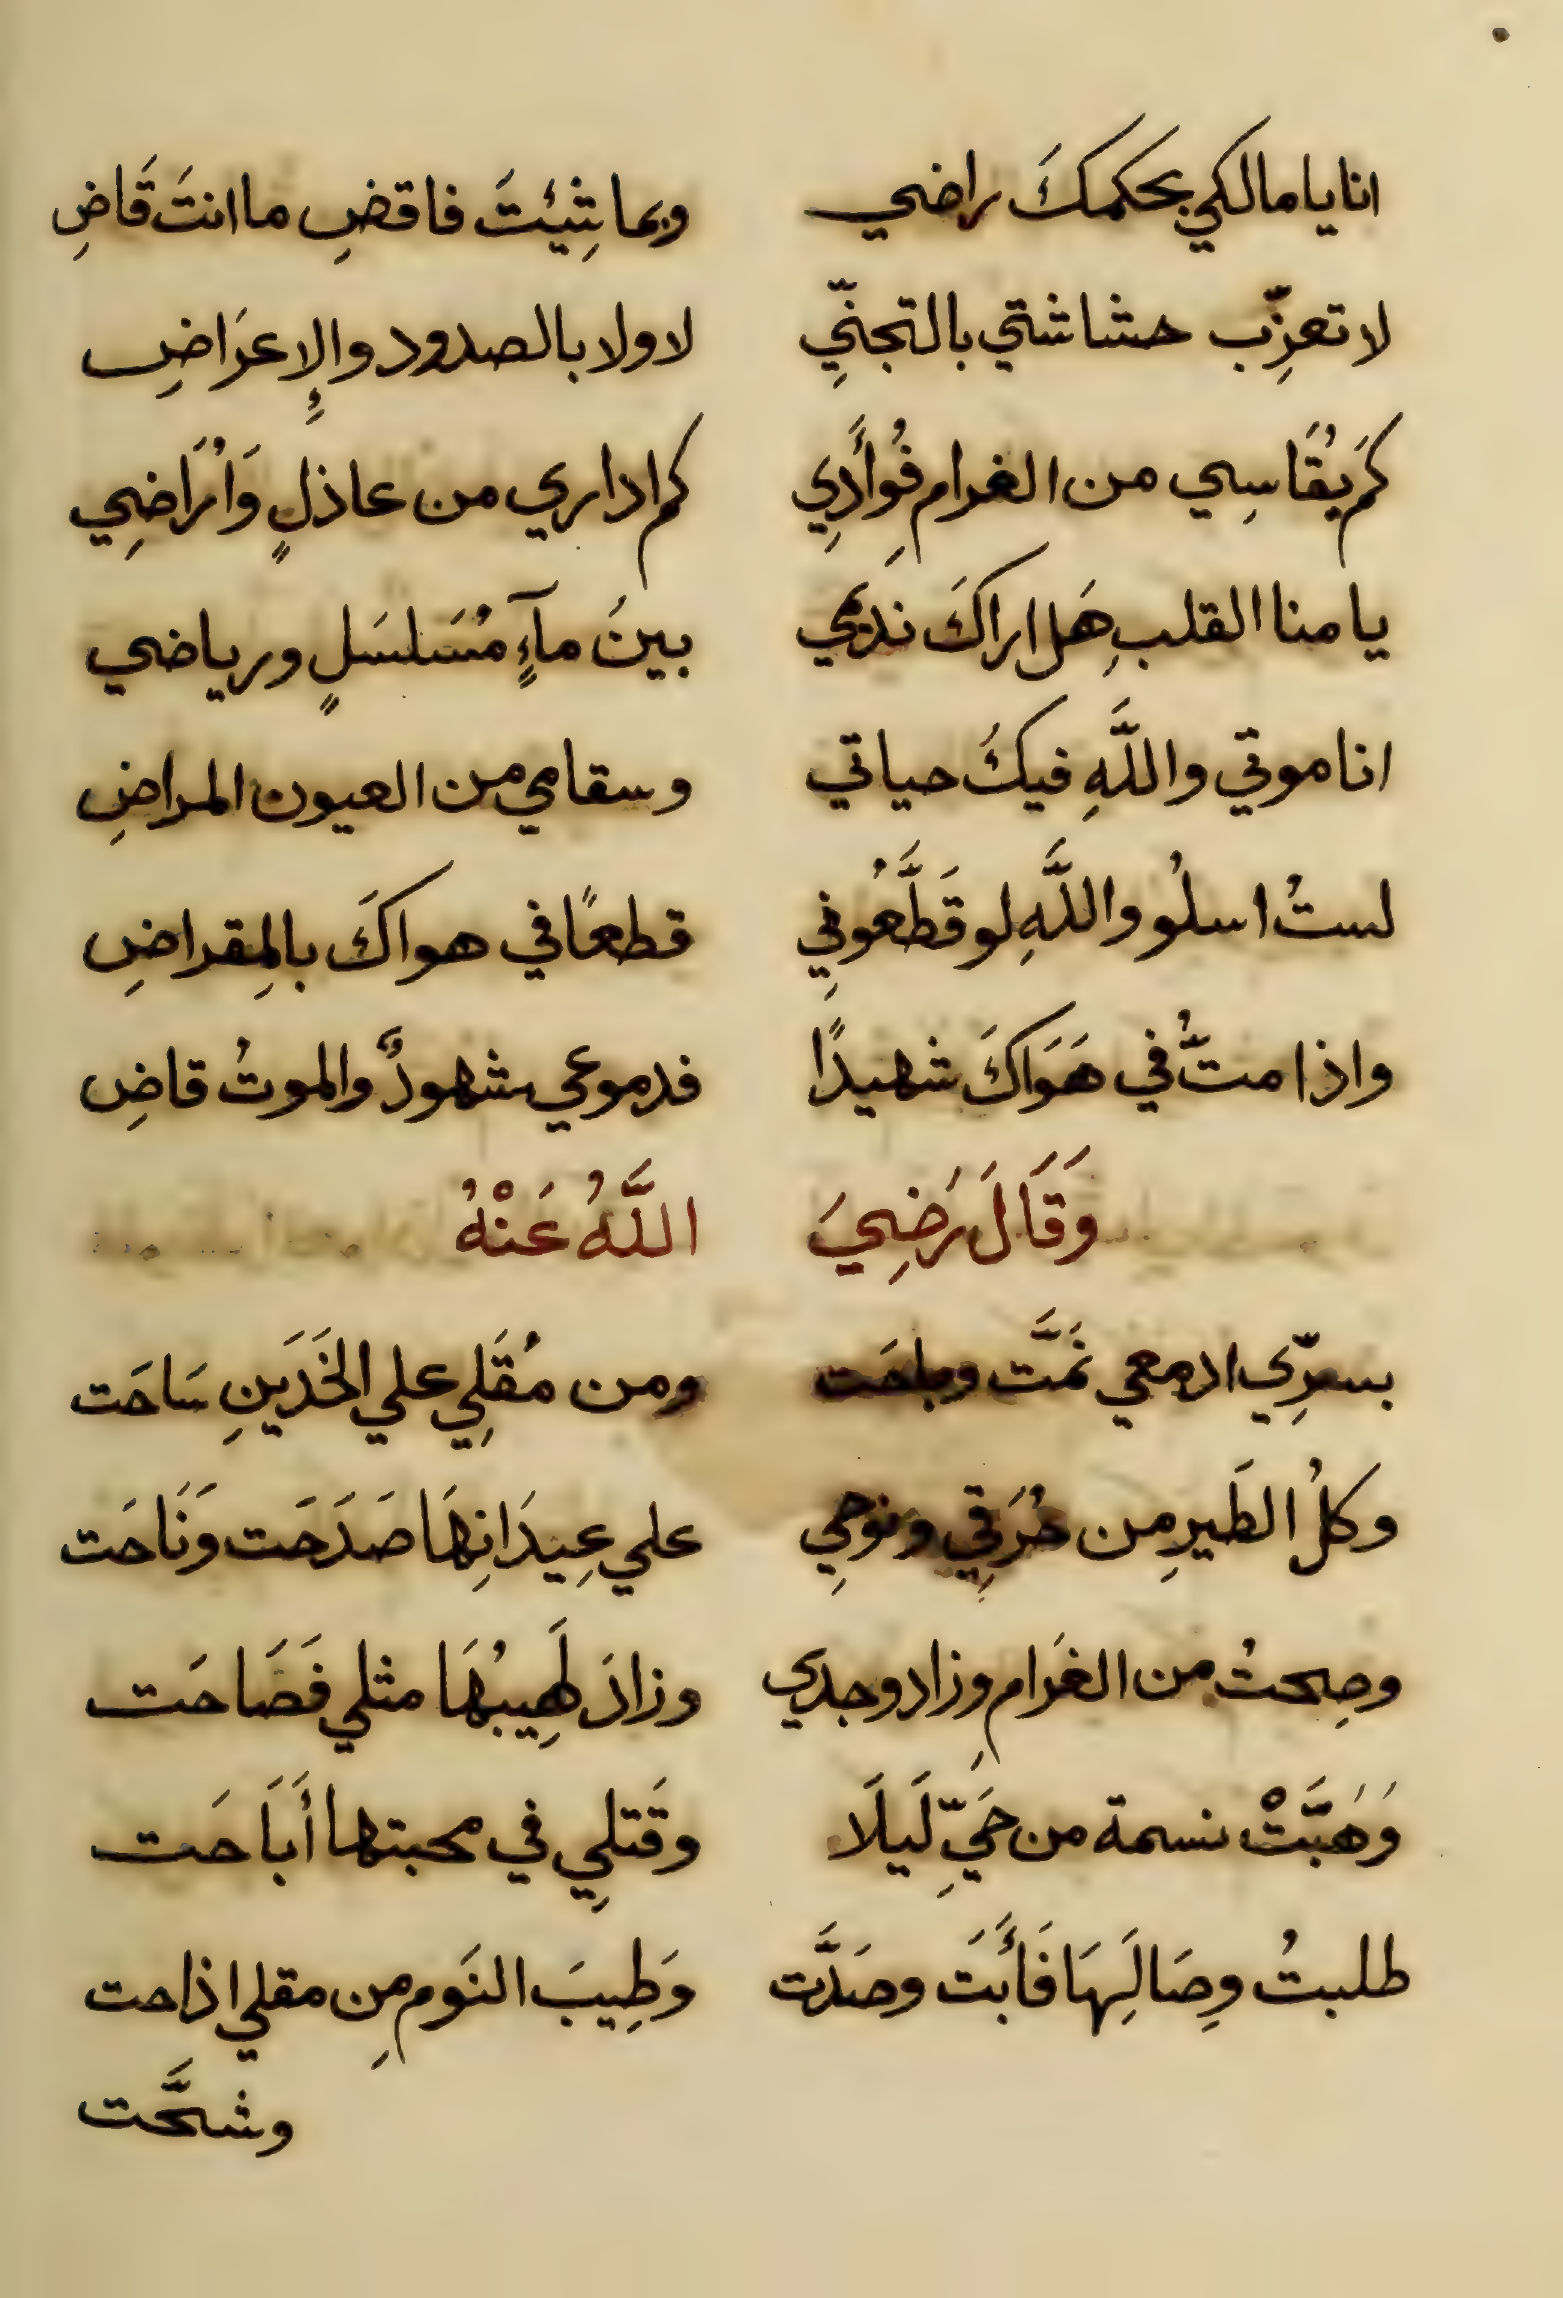 انا يا مالكي بحكمكَ راضي وبما شِئتَ فاقضِ ما انتَ قَاضِ
لا تعزِّب حشاشتي بالتجنِّي لا ولا بالصدود والإِعرَاضِ
كَم يُقَاسِي من الغرامِ فُوأَدِي كم اداري من عاذلٍ وَاُرَاضِي
يا منا القلبِ هَل اراكَ نديمي بينَ مآءٍ مُسَلسَلٍ ورياضي
انا موتي واللَّهِ فيكَ حياتي وسقامي من العيون المراضِ
لستُ اسلُو واللَّهِ لو قَطَّعُونِي قطعًا في هواكَ بالمِقراضِ
واذا متُّ في هَوَاكَ شهيدًا فدموعي شهودٌ والموتُ قاضِ
وَقَالَ رَضِيَ اللَّهُ عَنْهُ
بسرِّي ادمعي نَمَّت وباحَت ومن مُقَلِي علي الخَدَينِ سَاحَت
وكلُ الطَيرِ مِن حُرَقِي ونوحِي علي عِيدَانِهَا صَدَحَت ونَاحَت
وصِحتُ من الغَرامِ وزاد وجدي وزادَ لَهِيبُهَا مثلي فَصَاحَت
وَهَبَّتْ نسمة من حَيِّ لَيلَا وقَتلِي في محبتها أَبَاحَت
طلبتُ وِصَالِهَا فَأَبَت وصَدَّت وَطِيبَ النَومِ مِن مقلي اذاحت
وشحَّت